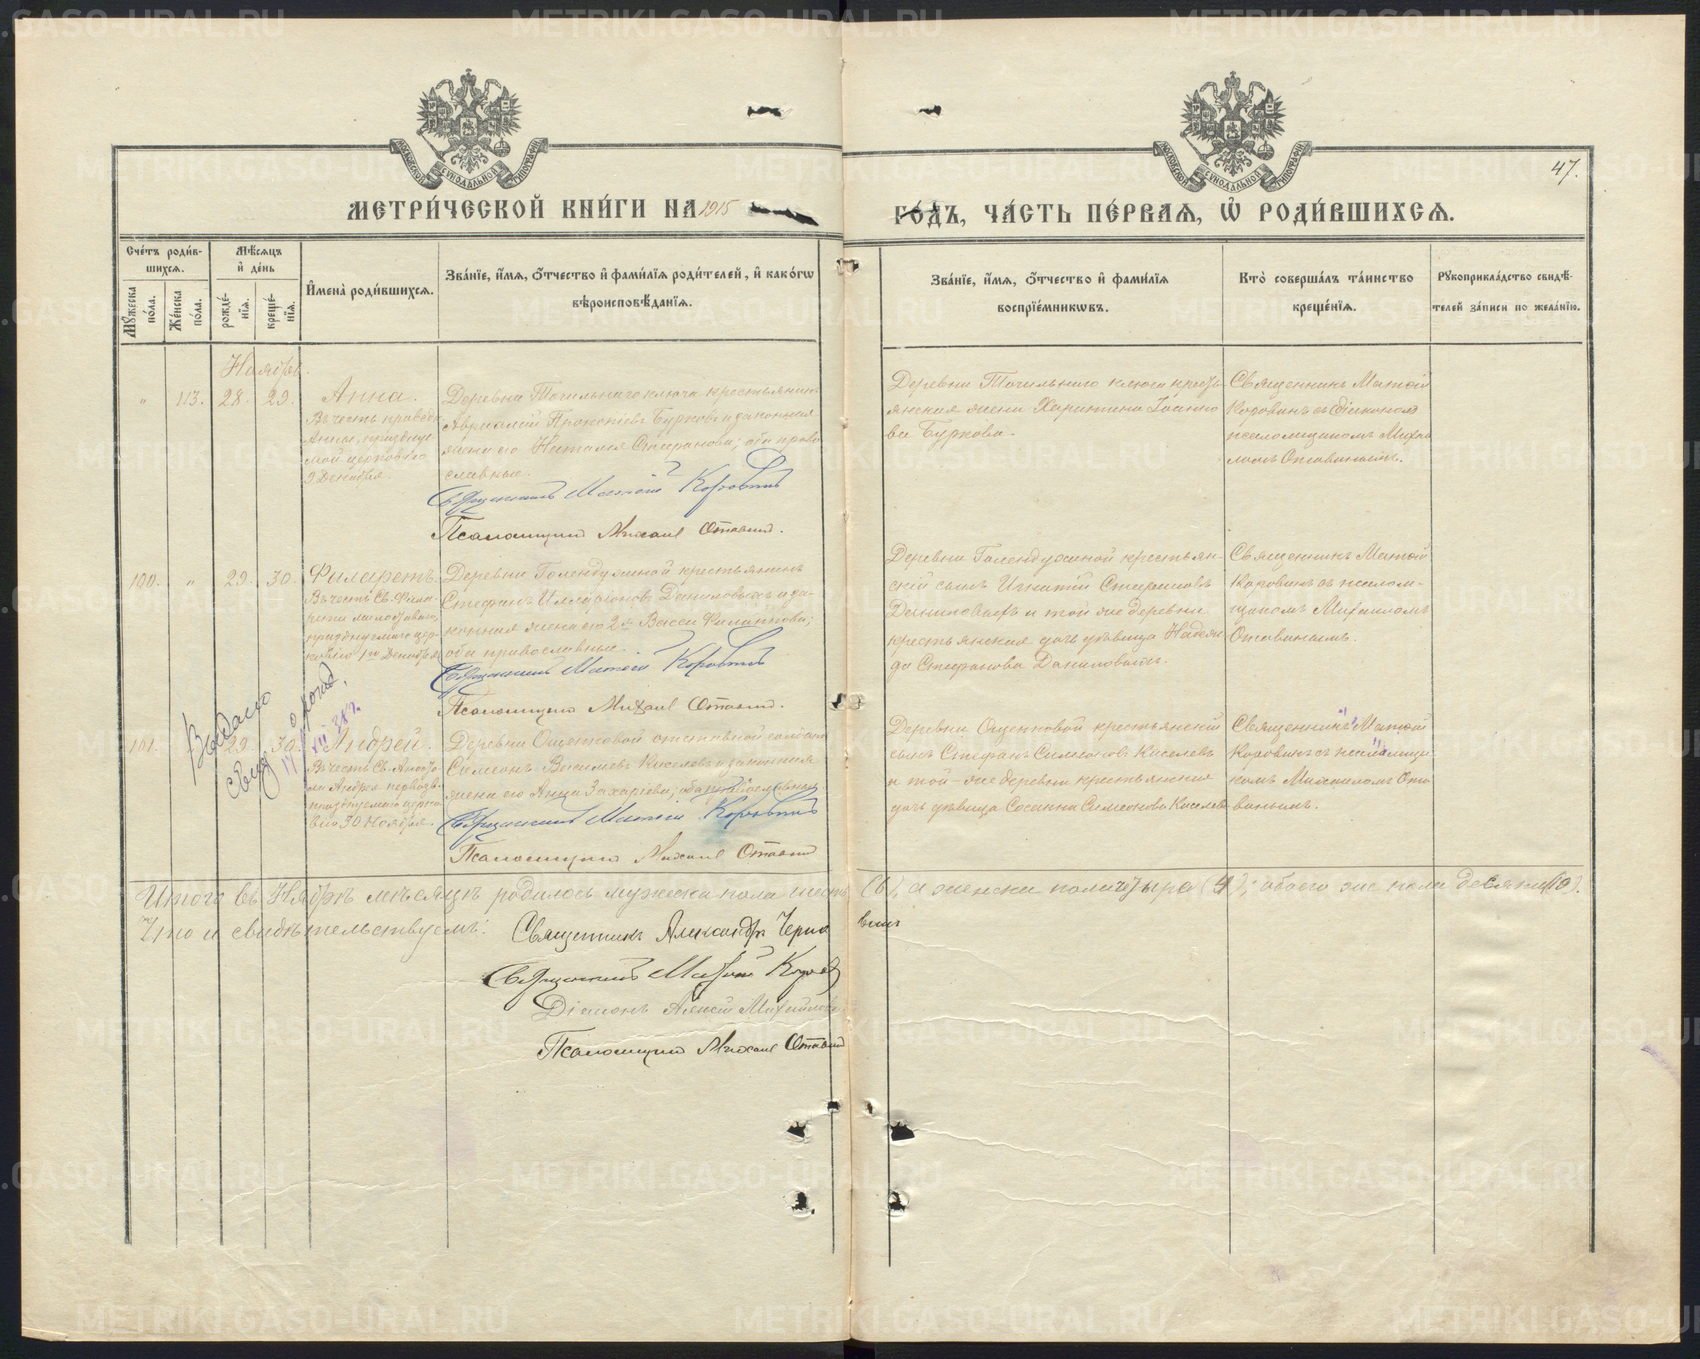 МЕТРИ́ЧЕСКОЙ КНИ́ГИ НА 1915
ГО́ДЪ, ЧА́СТЬ ПЕ́РВАЯ, Ѡ҆ РОДИ́ВШИХСЯ.
47.
Сче́тъ роди́в-
шихся.
Мѣ́сяцъ
и҆ де́нь
И҆мена̀ роди́вшихся.
Зва́нїе, и҆́мя, ѻ҆́тчество и҆ фами́лїя роди́телей, и҆ како́гѡ
вѣроисповѣ́данїя.
Мꙋ́жеска
по́ла.
Же́нска
по́ла.
рожде́-
нїя.
креще́-
нїя.
Зва́нїе, и҆́мя, ѻ҆́тчество и҆ фами́лїя
воспрїе́мникѡвъ.
Кто̀ соверша́лъ та́инство
креще́нїя.
Рꙋкоприкла́дство свидѣ́-
телей за́писи по жела́нїю.
Ноябрь.
" 113. 28. 29. Анна.
Въ честь правед.
Анны, празднуе
мой церковію
9 Декабря.
Деревни Точильнаго ключа крестьянинъ
Бурковъ и законная
жена его Наталія Стефанова; оба право
славные.
Священникъ Матѳій Коровинъ
Псаломщикъ Михаилъ Отавинъ.
Деревни Точильнаго ключа кресть
янская жена Харитина Іоанно
ва Буркова.
Священникъ Матѳій
Коровинъ съ діакономъ
псаломщикомъ Михаи
ломъ Отавинымъ.
100. " 29. 30. Филаретъ.
Въ честь Св. Фила-
рета милостиваго,
празднуемаго цер-
ковію 1го Декабря
Деревни Голендухиной крестьянинъ
Стефанъ Илларіоновъ Даниловыхъ и за-
конная жена его 2я Васса Филиппова;
оба православные.
Священникъ Матѳій Коровинъ
Псаломщикъ Михаилъ Отавинъ.
Деревни Голендухиной крестьян-
скій сынъ Игнатій Стефановъ
Даниловыхъ и той же деревни
крестьянская дочь дѣвица Надеж
да Стефанова Даниловыхъ.
Священникъ Матѳій
Коровинъ съ псалом-
щикомъ Михаиломъ
Отавинымъ.
Выдано
свид. о рожд.
101. 29. 30. Андрей.
Въ честь Св. Апосто
ла Андрея первозв.
празднуемаго церко
вію 30 Ноября.
Деревни Ощепковой солдатъ
Симеонъ Васильевъ Киселевъ и законная
жена его Анна Захаріева; оба православные.
Священникъ Матѳій Коровинъ
Псаломщикъ Михаилъ Отавинъ
Деревни Ощепковой крестьянскій
сынъ Стефанъ Симеоновъ Киселевъ
и той-же деревни крестьянская
дочь дѣвица Сосанна Симеонова Киселева
Священникъ Матѳій
Коровинъ съ псаломщи
комъ Михаиломъ Ота
винымъ.
Итого въ Ноябрѣ мѣсяцѣ родилось мужеска пола шесть (6), а женска пола четыре (4); обоего же пола десять (10).
Что и свидѣтельствуемъ: Священникъ Александръ Черна
винъ
Священникъ Матѳій Коровинъ
Діаконъ Алексій Михайловъ
Псаломщикъ Михаилъ Отавинъ
METRIKI.GASO-URAL.RU